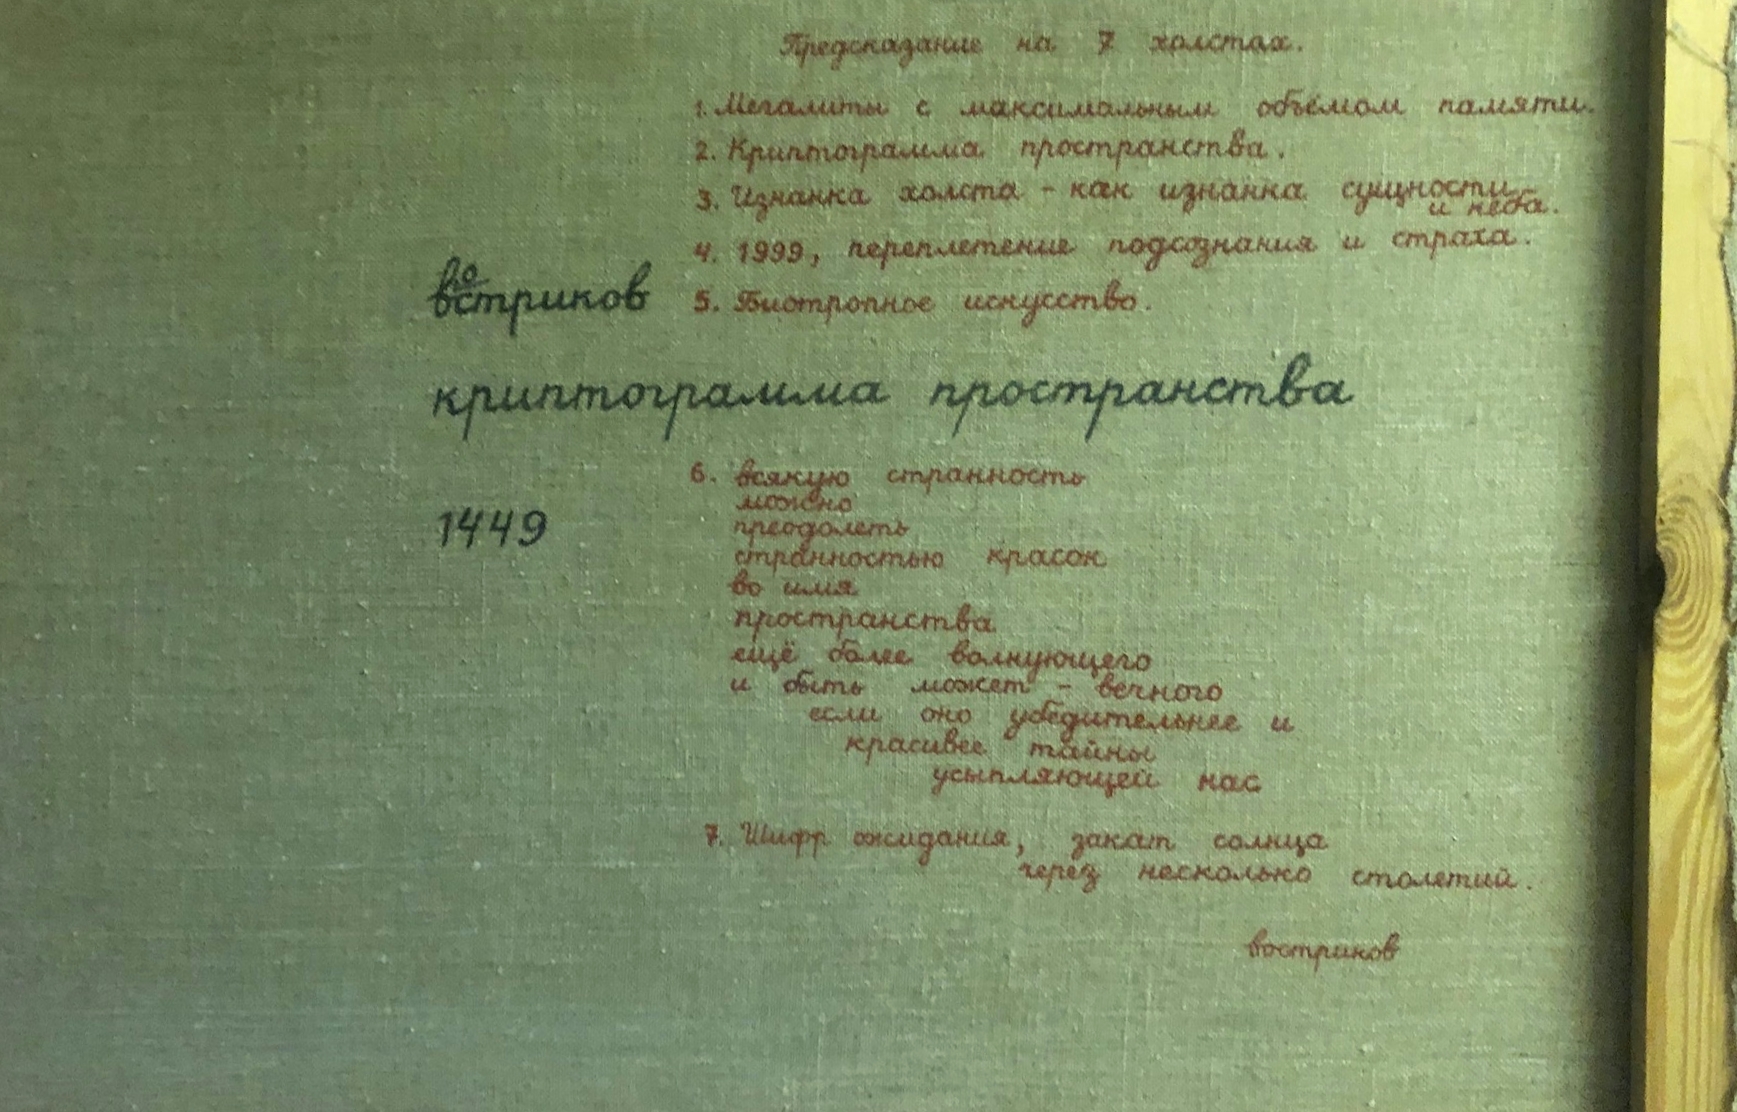 Предсказание на 7 холстах.
1. Мегалиты с максимальным объёмом памяти.
2. Криптограмма пространства.
3. Изнанка холста - как изнанка сущности
и неба.
4. 1999, переплетение подсознания и страха.
востриков
5. Биотропное искусство.
криптограмма пространства
6. всякую странность
можно
преодолеть
1449
странностью красок
во имя
пространства
ещё более волнующего
и быть может - вечного
если оно убедительнее и
красивее тайны
усыпляющей нас
7. Шифр ожидания, закат солнца
через несколько столетий.
востриков